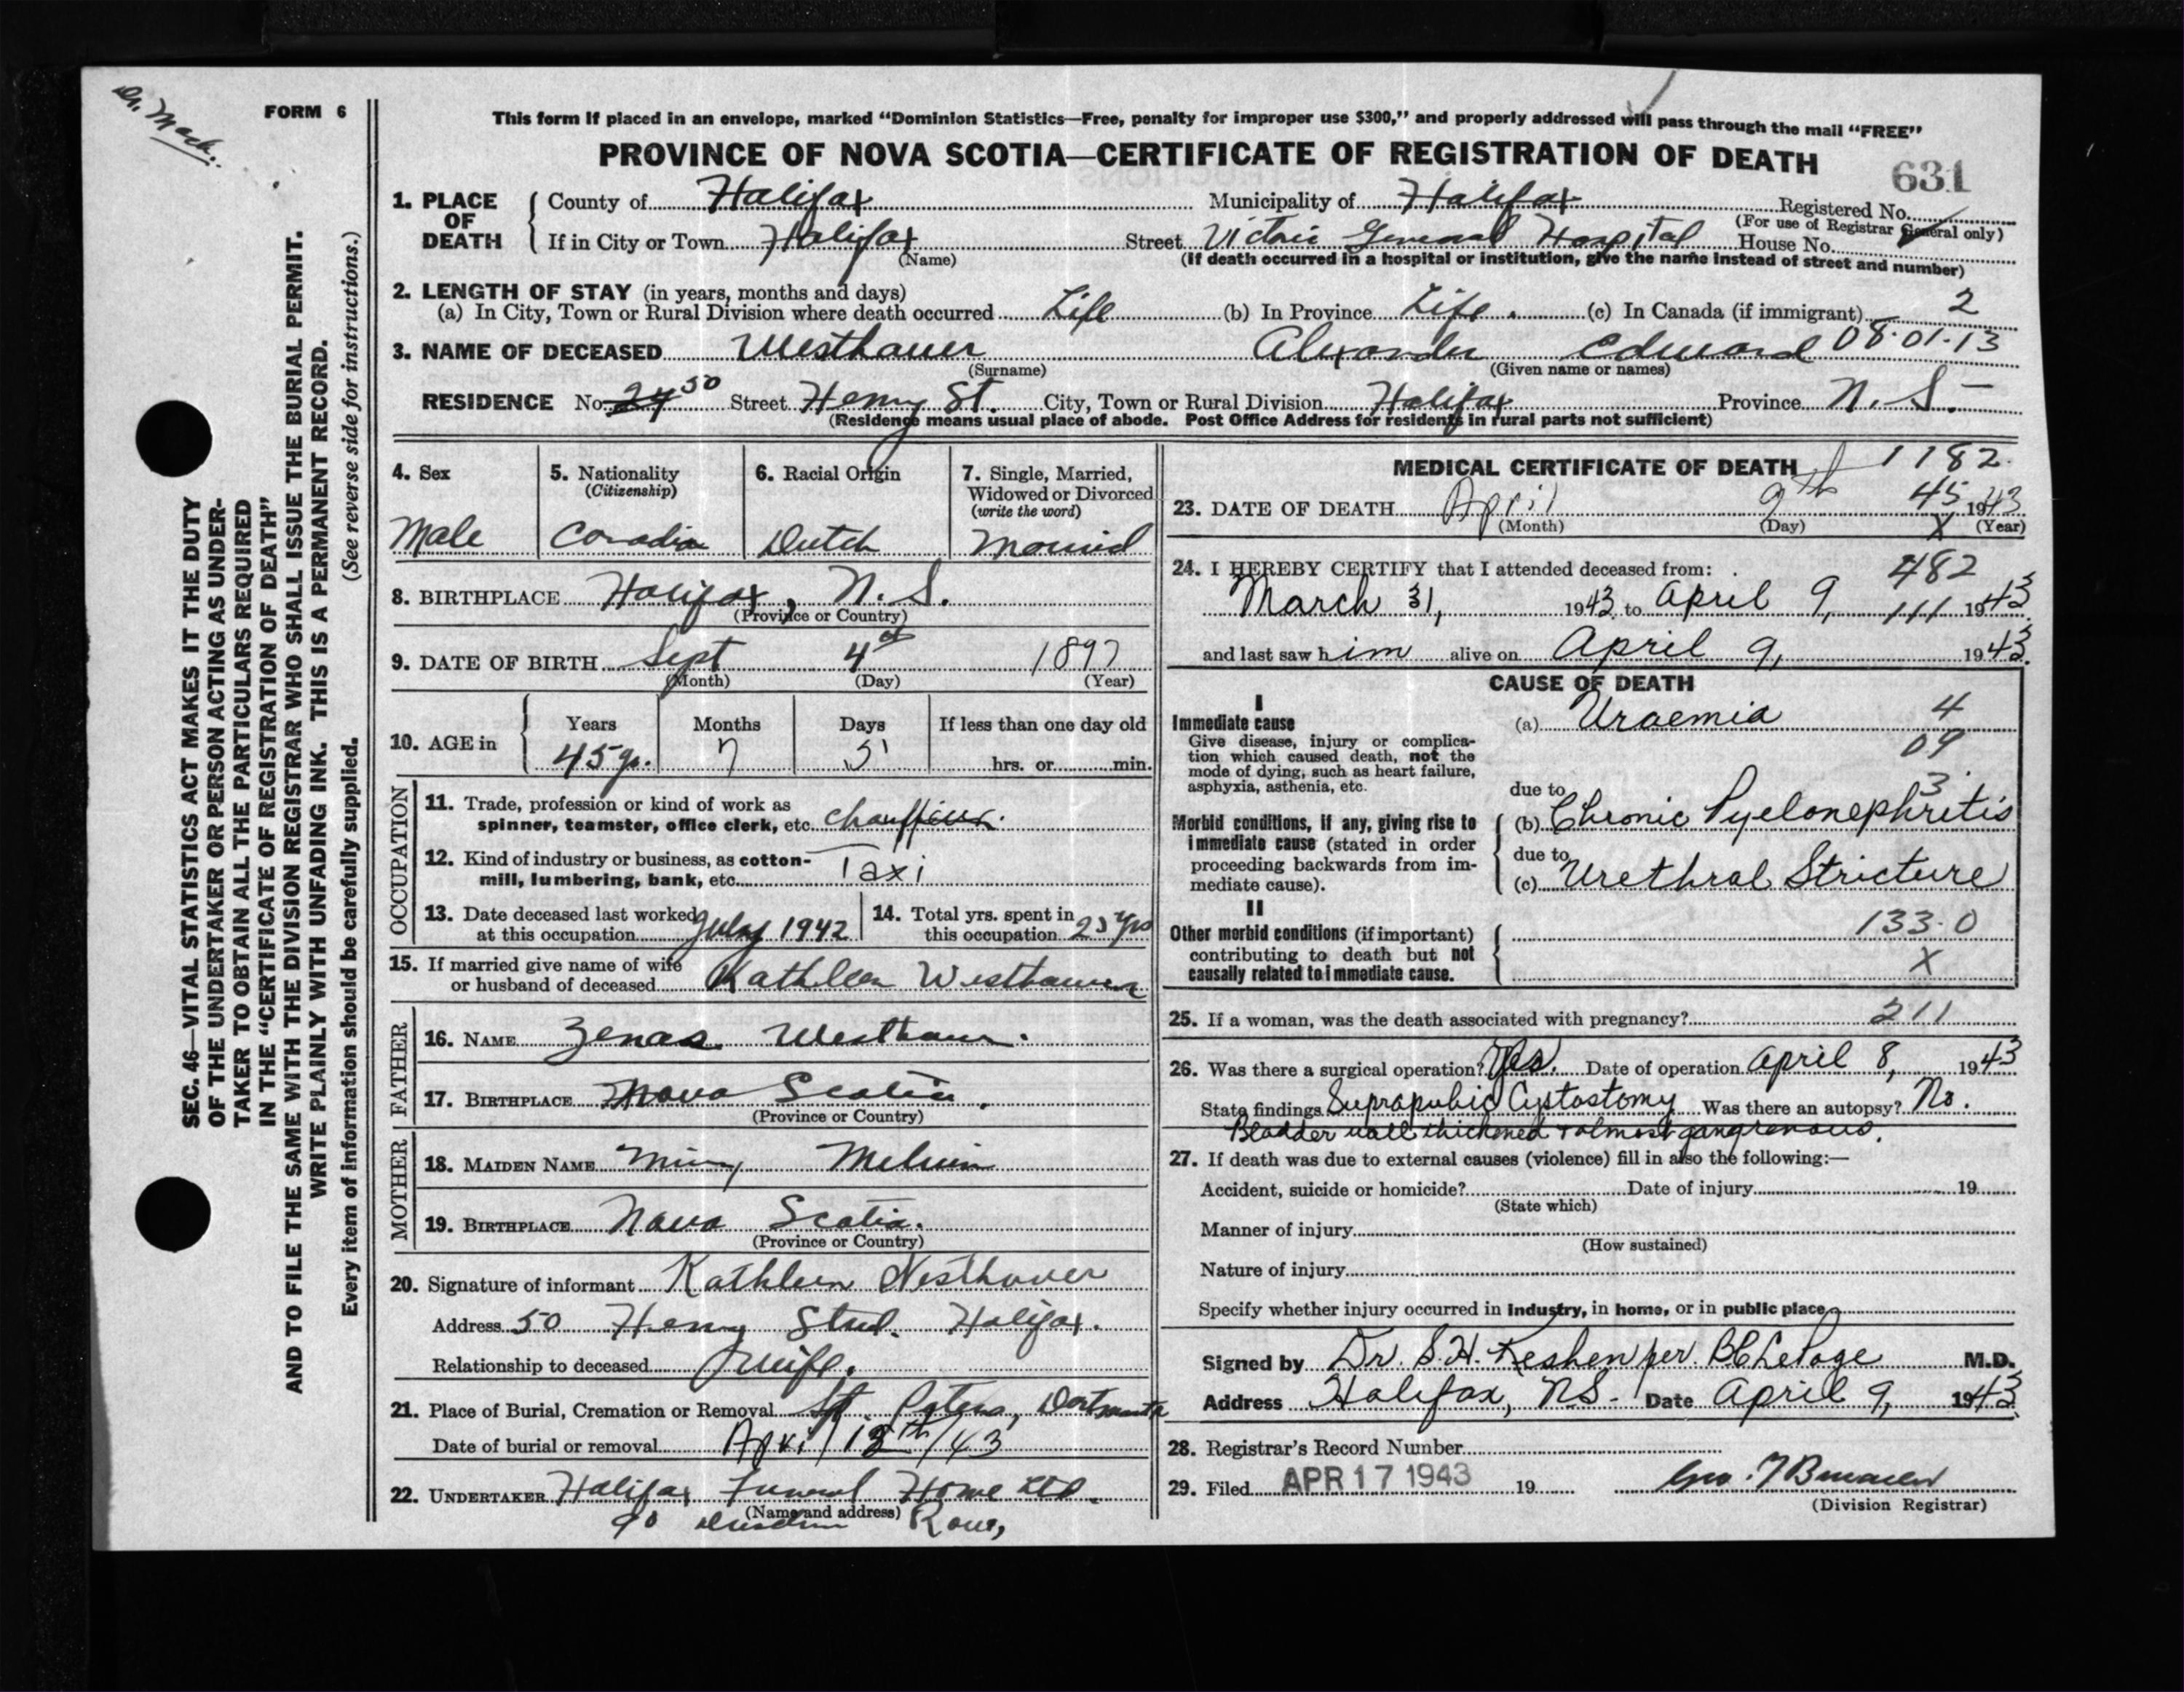 Dr. Mack.
FORM 6
SEC. 46—VITAL STATISTICS ACT MAKES IT THE DUTY
OF THE UNDERTAKER OR PERSON ACTING AS UNDER-
TAKER TO OBTAIN ALL THE PARTICULARS REQUIRED
IN THE "CERTIFICATE OF REGISTRATION OF DEATH"
AND TO FILE THE SAME WITH THE DIVISION REGISTRAR WHO SHALL ISSUE THE BURIAL PERMIT.
WRITE PLAINLY WITH UNFADING INK. THIS IS A PERMANENT RECORD.
Every item of information should be carefully supplied. (See reverse side for instructions.)
This form if placed in an envelope, marked "Dominion Statistics—Free, penalty for improper use $300," and properly addressed will pass through the mail "FREE"
PROVINCE OF NOVA SCOTIA—CERTIFICATE OF REGISTRATION OF DEATH
631
1. PLACE OF DEATH County of Halifax Municipality of Halifax Registered No.
(For use of Registrar General only)
If in City or Town Halifax Street Victoria General Hospital House No.
(Name) (If death occurred in a hospital or institution, give the name instead of street and number)
2. LENGTH OF STAY (in years, months and days)
(a) In City, Town or Rural Division where death occurred Life (b) In Province Life. (c) In Canada (if immigrant) 2
3. NAME OF DECEASED Westhaver Alexander Edward 08.01.13
(Surname) (Given name or names)
RESIDENCE No. 24 50 Street Henry St. City, Town or Rural Division Halifax Province N.S.
(Residence means usual place of abode. Post Office Address for residents in rural parts not sufficient)
4. Sex 5. Nationality (Citizenship) 6. Racial Origin 7. Single, Married, Widowed or Divorced (write the word)
Male Canadian Dutch Married
8. BIRTHPLACE Halifax, N.S.
(Province or Country)
9. DATE OF BIRTH Sept 4th 1897
(Month) (Day) (Year)
10. AGE in Years Months Days If less than one day old
45 yr. 7 5 hrs. or min.
OCCUPATION
11. Trade, profession or kind of work as
spinner, teamster, office clerk, etc. Chauffeur.
12. Kind of industry or business, as cotton-
mill, lumbering, bank, etc. Taxi
13. Date deceased last worked at this occupation July 1942 14. Total yrs. spent in this occupation 25 yrs
15. If married give name of wife
or husband of deceased Kathleen Westhaver
FATHER
16. NAME Zenas Westhaver.
17. BIRTHPLACE Nova Scotia.
(Province or Country)
MOTHER
18. MAIDEN NAME Melvin
19. BIRTHPLACE Nova Scotia.
(Province or Country)
20. Signature of informant Kathleen Westhaver
Address 50 Henry Street. Halifax.
Relationship to deceased Wife.
21. Place of Burial, Cremation or Removal St. Peters, Dartmouth
Date of burial or removal April 12th/43
22. UNDERTAKER Halifax Funeral Home Ltd.
(Name and address)
90 Row,
MEDICAL CERTIFICATE OF DEATH 1182.
23. DATE OF DEATH April 9th 45 1943
(Month) (Day) X (Year)
24. I HEREBY CERTIFY that I attended deceased from: 482
March 31, 1943 to April 9, 111 1943
and last saw him alive on April 9, 1943.
CAUSE OF DEATH
I
Immediate cause (a) Uraemia 4
Give disease, injury or complica-
tion which caused death, not the
mode of dying, such as heart failure,
asphyxia, asthenia, etc.
09
3.
due to
Morbid conditions, if any, giving rise to (b) Chronic Pyelonephritis
immediate cause (stated in order
proceeding backwards from im-
mediate cause).
due to
(c) Urethral Stricture
II
Other morbid conditions (if important) 133.0
contributing to death but not
causally related to immediate cause. X
25. If a woman, was the death associated with pregnancy? 211
26. Was there a surgical operation? Yes. Date of operation April 8, 1943
State findings Suprapubic Cystostomy Was there an autopsy? No.
Bladder wall thickened & almost gangrenous.
27. If death was due to external causes (violence) fill in also the following:—
Accident, suicide or homicide? Date of injury 19
(State which)
Manner of injury
(How sustained)
Nature of injury
Specify whether injury occurred in industry, in home, or in public place
Signed by Dr. S.H. Keshen per BC LePage M.D.
Address Halifax, N.S. Date April 9, 1943
28. Registrar's Record Number
29. Filed APR 17 1943 19
(Division Registrar)